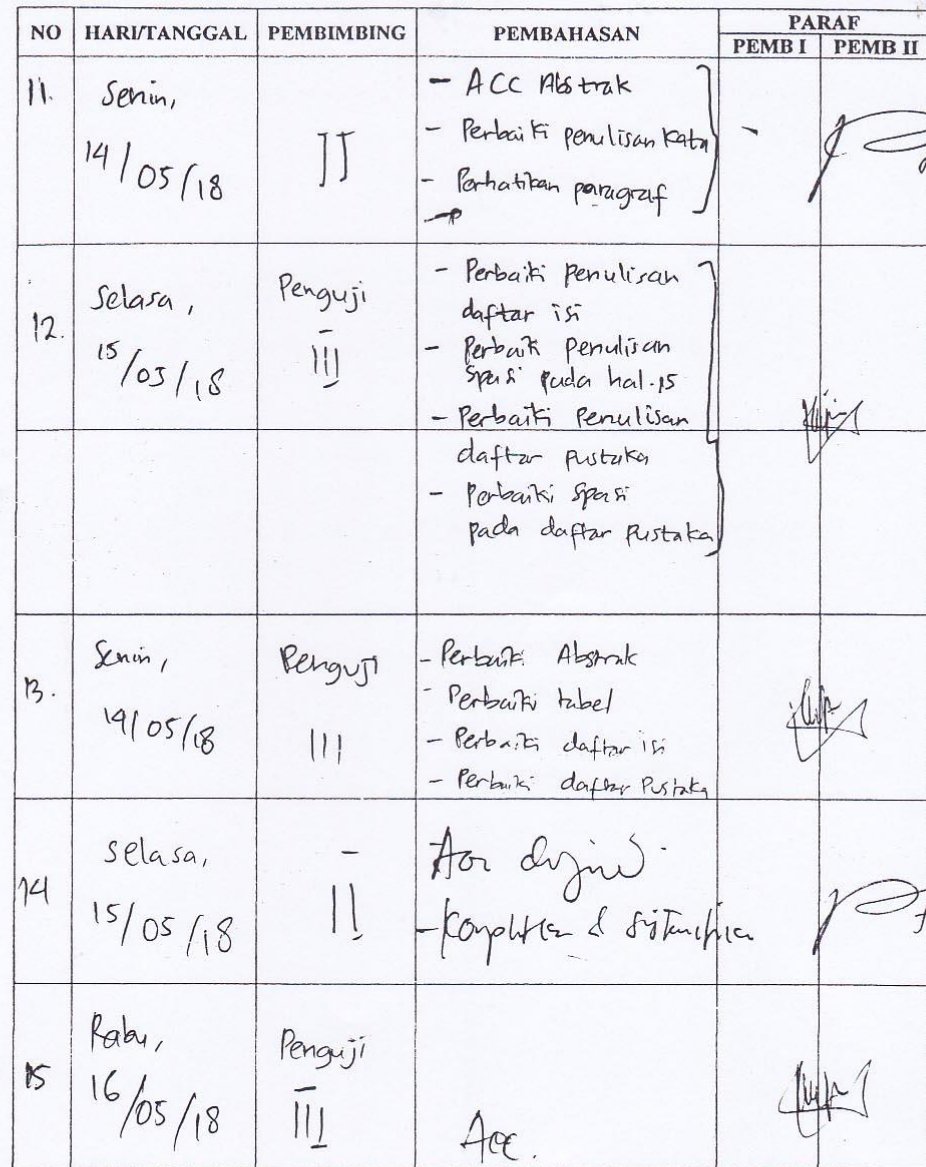 NO HARI/TANGGAL PEMBIMBING PEMBAHASAN PARAF
PEMB I PEMB II
11. Senin, 14/05/18 II
- ACC Abstrak
- Perbaiki penulisan kata
- Perhatikan paragraf
12. Selasa, 15/05/18 Penguji III
- Perbaiki penulisan
daftar isi
- Perbaiki penulisan
spasi pada hal.15
- Perbaiki Penulisan
daftar pustaka
- Perbaiki spasi
pada daftar pustaka
13. Senin, 14/05/18 Penguji III
- Perbaiki Abstrak
- Perbaiki tabel
- Perbaiki daftar isi
- Perbaiki daftar Pustaka
14 selasa, 15/05/18 II
15 Rabu, 16/05/18 Penguji III
Acc.